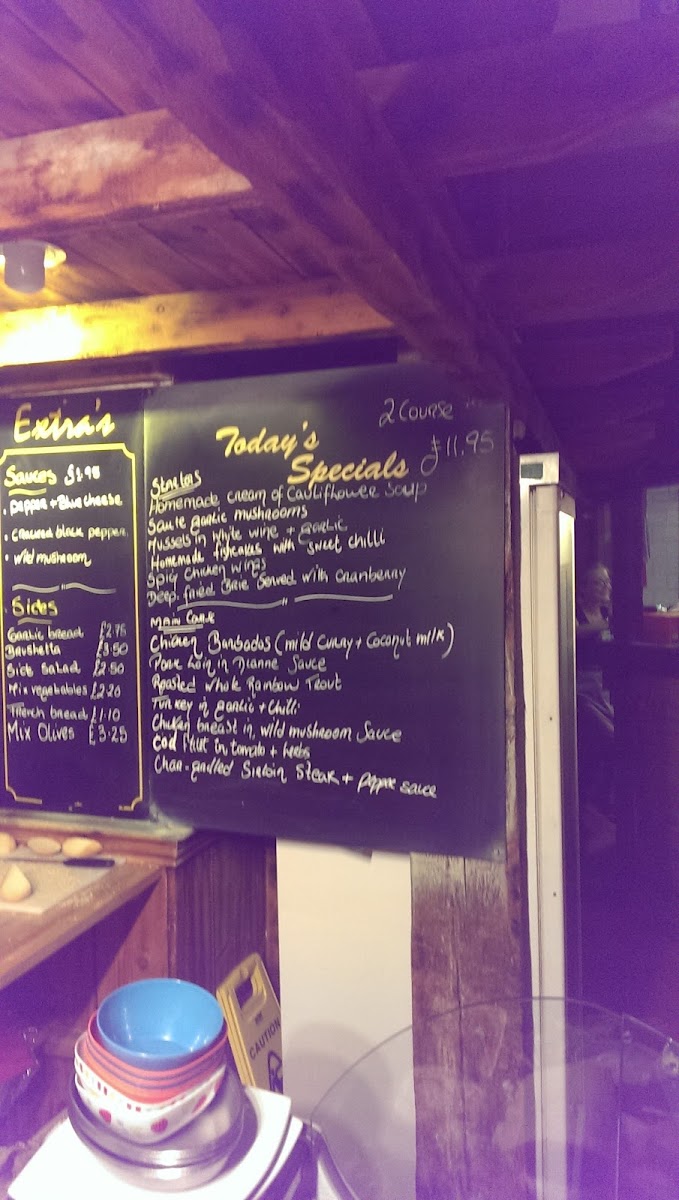 Extra's
Sauces £1.95
. Pepper + Blue cheese
. Cracked black pepper
. Wild mushroom
. Sides
Garlic bread £2.75
Brushetta £3.50
Side Salad £2.50
Mix vegetables £2.20
French bread £1.10
Mix Olives £3.25
2 Course
£11.95
Today's
Specials
Starters
Homemade cream of Cauliflower Soup
Saute garlic mushrooms
Mussels in white wine + garlic
Homemade fishcakes with sweet chilli
Spicy Chicken wings
Deep fried Brie Served with Cranberry
Main Course
Chicken Barbados (mild curry + Coconut milk)
Pork Loin in Dianne Sauce
Roasted Whole Rainbow Trout
Turkey in garlic + chilli
Chicken breast in wild mushroom Sauce
Cod fillet in tomato + herbs
Char-grilled Sirloin Steak + pepper sauce
CAUTION